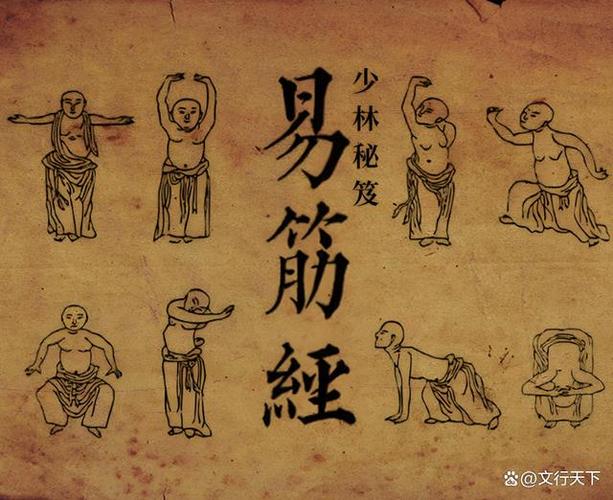 少林秘笈
易筋經
@文行天下